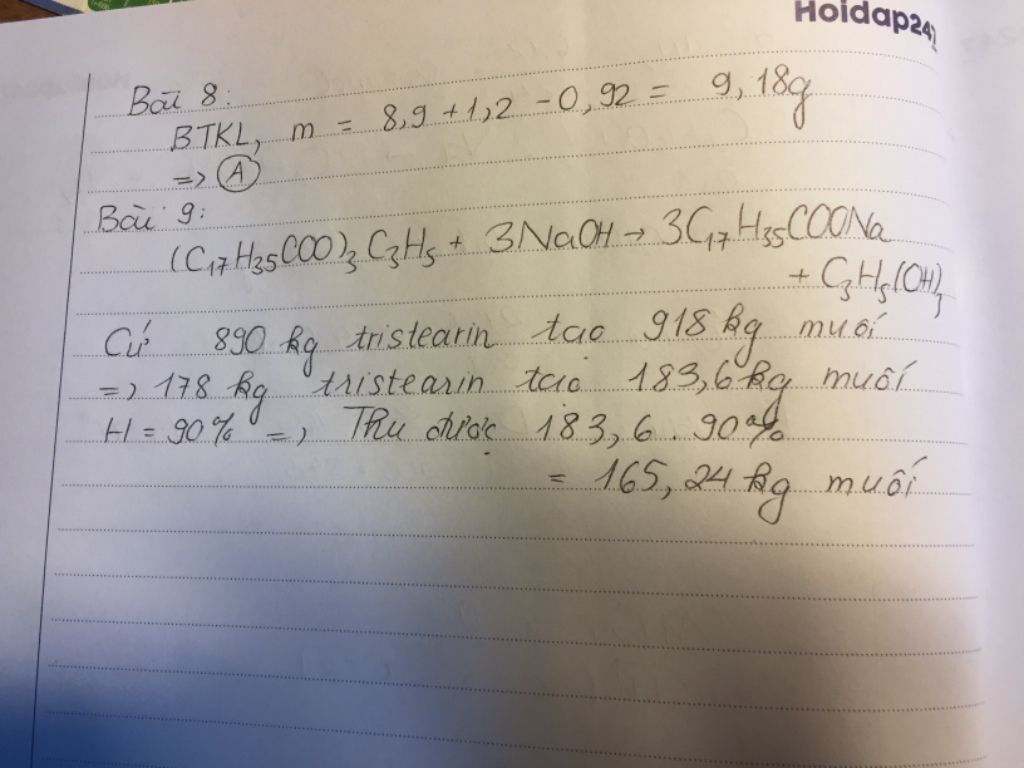 Hoidap247
Bài 8:
BTKL, m = 8,9 + 1,2 - 0,92 = 9,18g
=> A
Bài 9:
(C₁₇H₃₅COO)₃C₃H₅ + 3NaOH → 3C₁₇H₃₅COONa
+ C₃H₅(OH)₃
Cứ 890 kg tristearin tạo 918 kg muối
=> 178 kg tristearin tạo 183,6 kg muối
H = 90% => Thu được 183,6 . 90%
= 165,24 kg muối